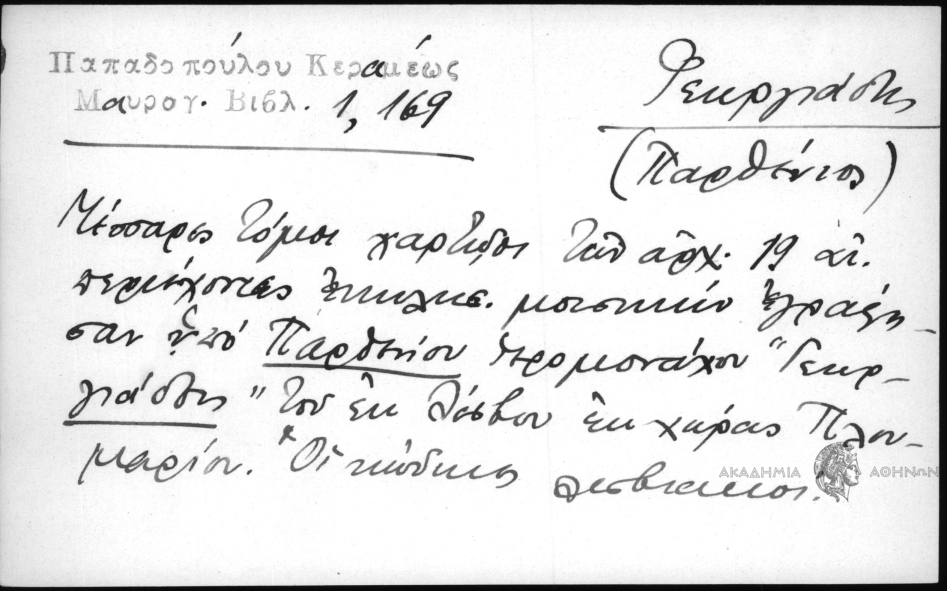 Παπαδοπούλου Κεραμέως
Μαυρογ. Βιβλ. 1, 169
Γεωργιάδης
(Παρθένιος)
Τέσσαρες τόμοι χαρτῷοι τῶν ἀρχ. 19 αἰ.
περιέχοντες ἐκκλησ. μουσικήν ἐγράφη-
σαν ὑπό Παρθενίου ἱερομονάχου "Γεωρ-
γιάδης" τοῦ ἐκ Λέσβου ἐκ χώρας Πλου-
μαρίου. Οἱ κώδικες λεσβιακοι.
ΑΚΑΔΗΜΙΑ ΑΘΗΝΩΝ